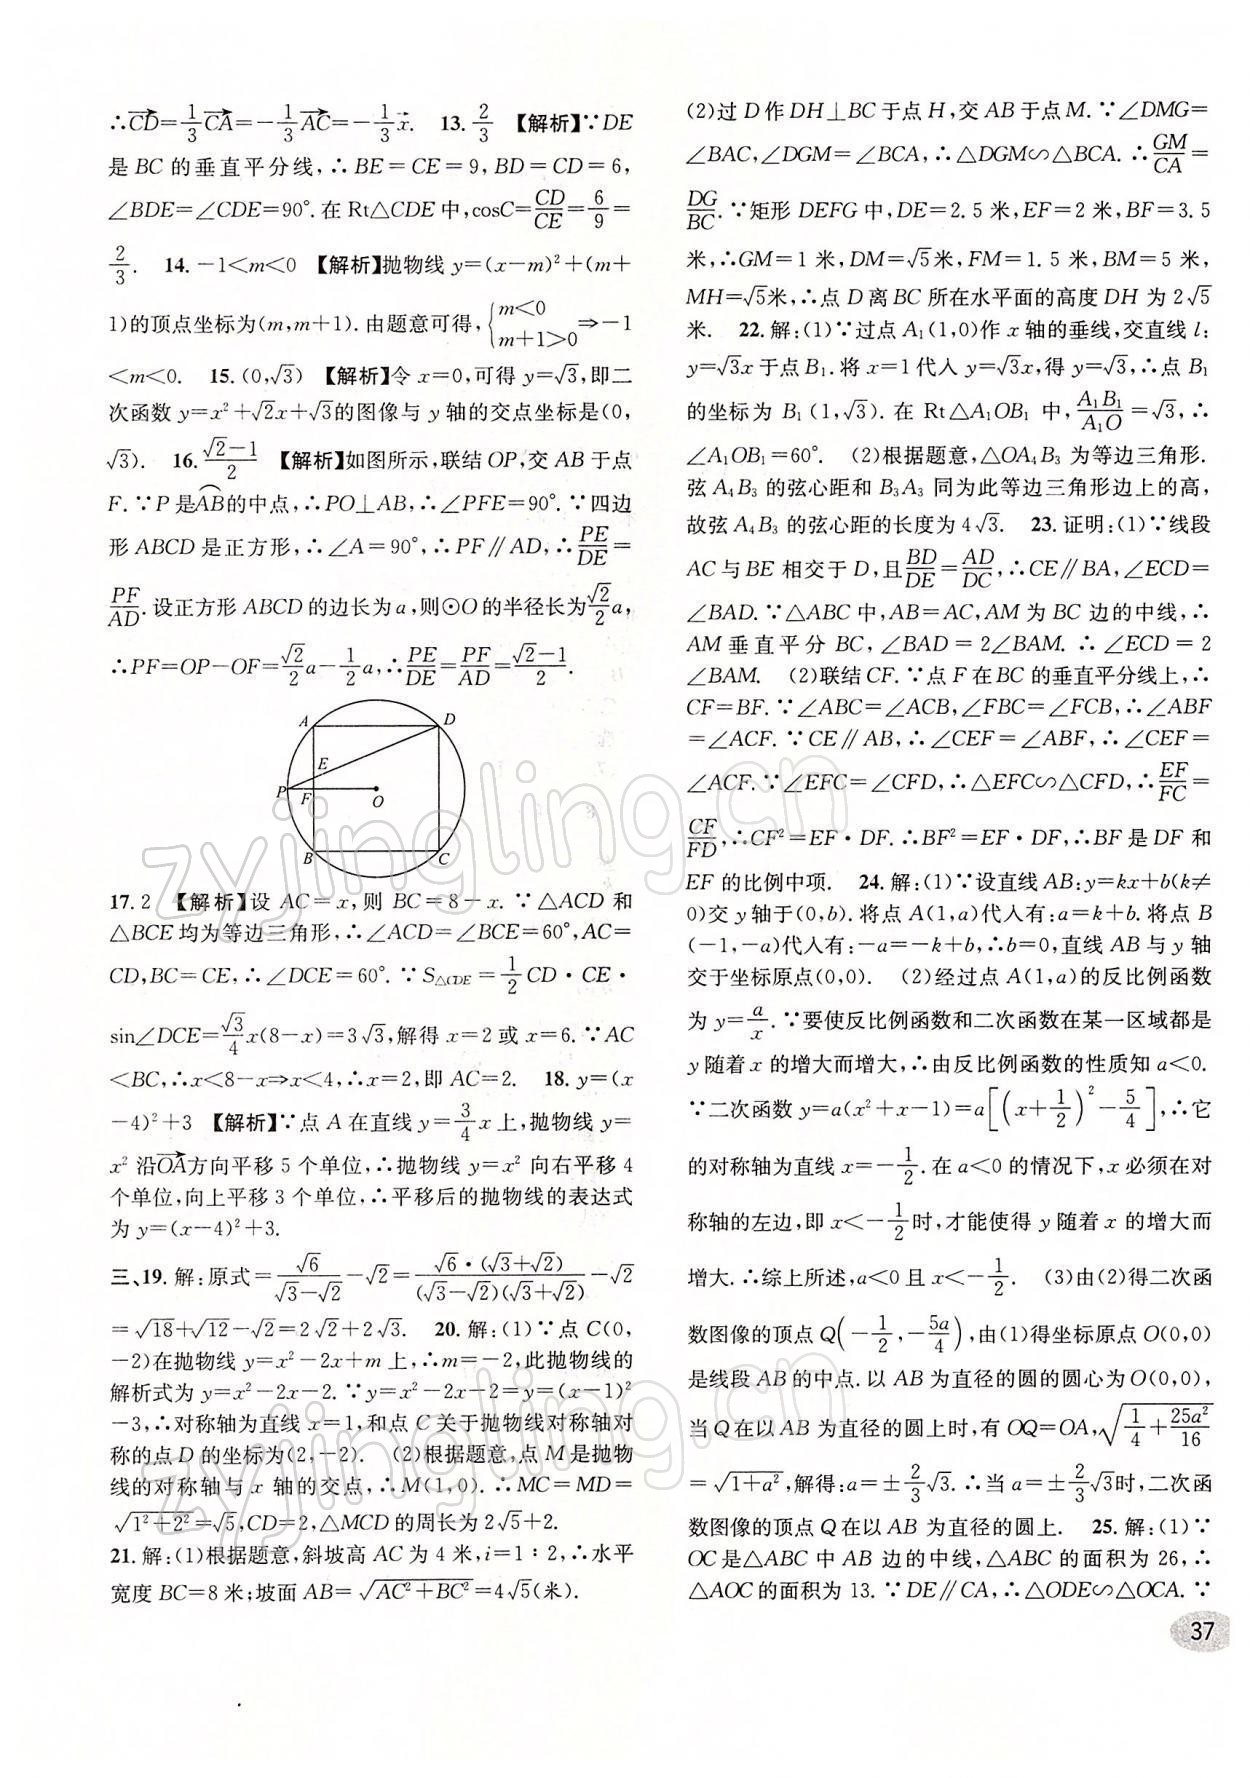 ∴$\overrightarrow{CD}=\frac{1}{3}\overrightarrow{CA}=-\frac{1}{3}\overrightarrow{AC}=-\frac{1}{3}\vec{x}$. 13. $\frac{2}{3}$ 【解析】∵DE
是BC的垂直平分线,∴BE=CE=9,BD=CD=6,
∠BDE=∠CDE=90°.在Rt△CDE中,cosC=$\frac{CD}{CE}=\frac{6}{9}$=
$\frac{2}{3}$. 14. -1<m<0 【解析】抛物线y=(x-m)²+(m+
1)的顶点坐标为(m,m+1).由题意可得,$\begin{cases}m<0\\m+1>0\end{cases}$⇒-1
<m<0. 15. (0,√3) 【解析】令x=0,可得y=√3,即二
次函数y=x²+√2x+√3的图像与y轴的交点坐标是(0,
√3). 16. $\frac{\sqrt{2}-1}{2}$ 【解析】如图所示,联结OP,交AB于点
F.∵P是$\overset{\frown}{AB}$的中点,∴PO⊥AB,∴∠PFE=90°.∵四边
形ABCD是正方形,∴∠A=90°,∴PF∥AD,∴$\frac{PE}{DE}$=
$\frac{PF}{AD}$.设正方形ABCD的边长为a,则⊙O的半径长为$\frac{\sqrt{2}}{2}$a,
∴PF=OP-OF=$\frac{\sqrt{2}}{2}a-\frac{1}{2}a$,∴$\frac{PE}{DE}=\frac{PF}{AD}=\frac{\sqrt{2}-1}{2}$.
A D
E
P F O
B C
17. 2 【解析】设AC=x,则BC=8-x.∵△ACD和
△BCE均为等边三角形,∴∠ACD=∠BCE=60°,AC=
CD,BC=CE,∴∠DCE=60°.∵$S_{△CDE}=\frac{1}{2}$CD·CE·
sin∠DCE=$\frac{\sqrt{3}}{4}$x(8-x)=3√3,解得x=2或x=6.∵AC
<BC,∴x<8-x⇒x<4,∴x=2,即AC=2. 18. y=(x
-4)²+3 【解析】∵点A在直线y=$\frac{3}{4}$x上,抛物线y=
x²沿$\overrightarrow{OA}$方向平移5个单位,∴抛物线y=x²向右平移4
个单位,向上平移3个单位,∴平移后的抛物线的表达式
为y=(x-4)²+3.
三、19. 解:原式=$\frac{\sqrt{6}}{\sqrt{3}-\sqrt{2}}-\sqrt{2}=\frac{\sqrt{6}·(\sqrt{3}+\sqrt{2})}{(\sqrt{3}-\sqrt{2})(\sqrt{3}+\sqrt{2})}-\sqrt{2}$
=√18+√12-√2=2√2+2√3. 20. 解:(1)∵点C(0,
-2)在抛物线y=x²-2x+m上,∴m=-2,此抛物线的
解析式为y=x²-2x-2.∵y=x²-2x-2=(x-1)²
-3,∴对称轴为直线x=1,和点C关于抛物线对称轴对
称的点D的坐标为(2,-2). (2)根据题意,点M是抛物
线的对称轴与x轴的交点,∴M(1,0).∴MC=MD=
$\sqrt{1^2+2^2}=\sqrt{5}$,CD=2,△MCD的周长为2√5+2.
21. 解:(1)根据题意,斜坡高AC为4米,i=1∶2,∴水平
宽度BC=8米;坡面AB=$\sqrt{AC^2+BC^2}$=4√5(米).
(2)过D作DH⊥BC于点H,交AB于点M.∵∠DMG=
∠BAC,∠DGM=∠BCA,∴△DGM∽△BCA.∴$\frac{GM}{CA}$=
$\frac{DG}{BC}$.∵矩形DEFG中,DE=2.5米,EF=2米,BF=3.5
米,∴GM=1米,DM=√5米,FM=1.5米,BM=5米,
MH=√5米,∴点D离BC所在水平面的高度DH为2√5
米. 22. 解:(1)∵过点A₁(1,0)作x轴的垂线,交直线l:
y=√3x于点B₁.将x=1代入y=√3x,得y=√3,∴点B₁
的坐标为B₁(1,√3).在Rt△A₁OB₁中,$\frac{A_1B_1}{A_1O}=\sqrt{3}$,∴
∠A₁OB₁=60°. (2)根据题意,△OA₄B₃为等边三角形.
弦A₄B₃的弦心距和B₃A₃同为此等边三角形边上的高,
故弦A₄B₃的弦心距的长度为4√3. 23. 证明:(1)∵线段
AC与BE相交于D,且$\frac{BD}{DE}=\frac{AD}{DC}$,∴CE∥BA,∠ECD=
∠BAD.∵△ABC中,AB=AC,AM为BC边的中线,∴
AM垂直平分BC,∠BAD=2∠BAM.∴∠ECD=2
∠BAM. (2)联结CF.∵点F在BC的垂直平分线上,∴
CF=BF.∵∠ABC=∠ACB,∠FBC=∠FCB,∴∠ABF
=∠ACF.∵CE∥AB,∴∠CEF=∠ABF,∴∠CEF=
∠ACF.∵∠EFC=∠CFD,∴△EFC∽△CFD,∴$\frac{EF}{FC}$=
$\frac{CF}{FD}$,∴CF²=EF·DF.∴BF²=EF·DF,∴BF是DF和
EF的比例中项. 24. 解:(1)∵设直线AB:y=kx+b(k≠
0)交y轴于(0,b).将点A(1,a)代入有:a=k+b.将点B
(-1,-a)代入有:-a=-k+b,∴b=0,直线AB与y轴
交于坐标原点(0,0). (2)经过点A(1,a)的反比例函数
为y=$\frac{a}{x}$.∵要使反比例函数和二次函数在某一区域都是
y随着x的增大而增大,∴由反比例函数的性质知a<0.
∵二次函数y=a(x²+x-1)=a$\left[\left(x+\frac{1}{2}\right)^2-\frac{5}{4}\right]$,∴它
的对称轴为直线x=-$\frac{1}{2}$.在a<0的情况下,x必须在对
称轴的左边,即x<-$\frac{1}{2}$时,才能使得y随着x的增大而
增大.∴综上所述,a<0且x<-$\frac{1}{2}$. (3)由(2)得二次函
数图像的顶点Q$\left(-\frac{1}{2},-\frac{5a}{4}\right)$,由(1)得坐标原点O(0,0)
是线段AB的中点.以AB为直径的圆的圆心为O(0,0),
当Q在以AB为直径的圆上时,有OQ=OA,$\sqrt{\frac{1}{4}+\frac{25a^2}{16}}$
=$\sqrt{1+a^2}$,解得:a=±$\frac{2}{3}$√3.∴当a=±$\frac{2}{3}$√3时,二次函
数图像的顶点Q在以AB为直径的圆上. 25. 解:(1)∵
OC是△ABC中AB边的中线,△ABC的面积为26,∴
△AOC的面积为13.∵DE∥CA,∴△ODE∽△OCA.∵
37
zyjingling.cn
zyjingling.cn